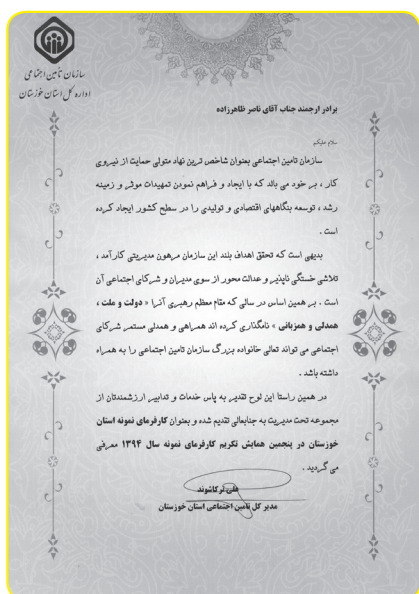 سازمان تأمین اجتماعی
اداره کل استان خوزستان
برادر ارجمند جناب آقای ناصر ظاهرزاده
سلام علیکم
سازمان تامین اجتماعی بعنوان شاخص ترین نهاد متولی حمایت از نیروی
کار ، بر خود می بالد که با ایجاد و فراهم نمودن تمهیدات موثر و زمینه
رشد ، توسعه بنگاههای اقتصادی و تولیدی را در سطح کشور ایجاد کرده
است .
بدیهی است که تحقق اهداف بلند این سازمان مرهون مدیریتی کارآمد ،
تلاشی خستگی ناپذیر و عدالت محور از سوی مدیران و شرکای اجتماعی آن
است . بر همین اساس در سالی که مقام معظم رهبری آنرا « دولت و ملت ،
همدلی و همزبانی » نامگذاری کرده اند همراهی و همدلی مستمر شرکای
اجتماعی می تواند تعالی خانواده بزرگ سازمان تامین اجتماعی را به همراه
داشته باشد .
در همین راستا این لوح تقدیر به پاس خدمات و تدابیر ارزشمندتان از
مجموعه تحت مدیریت به جنابعالی تقدیم شده و بعنوان کارفرمای نمونه استان
خوزستان در پنجمین همایش تکریم کارفرمای نمونه سال ۱۳۹۴ معرفی
می گردید .
علی ترکاشوند
مدیر کل تامین اجتماعی استان خوزستان